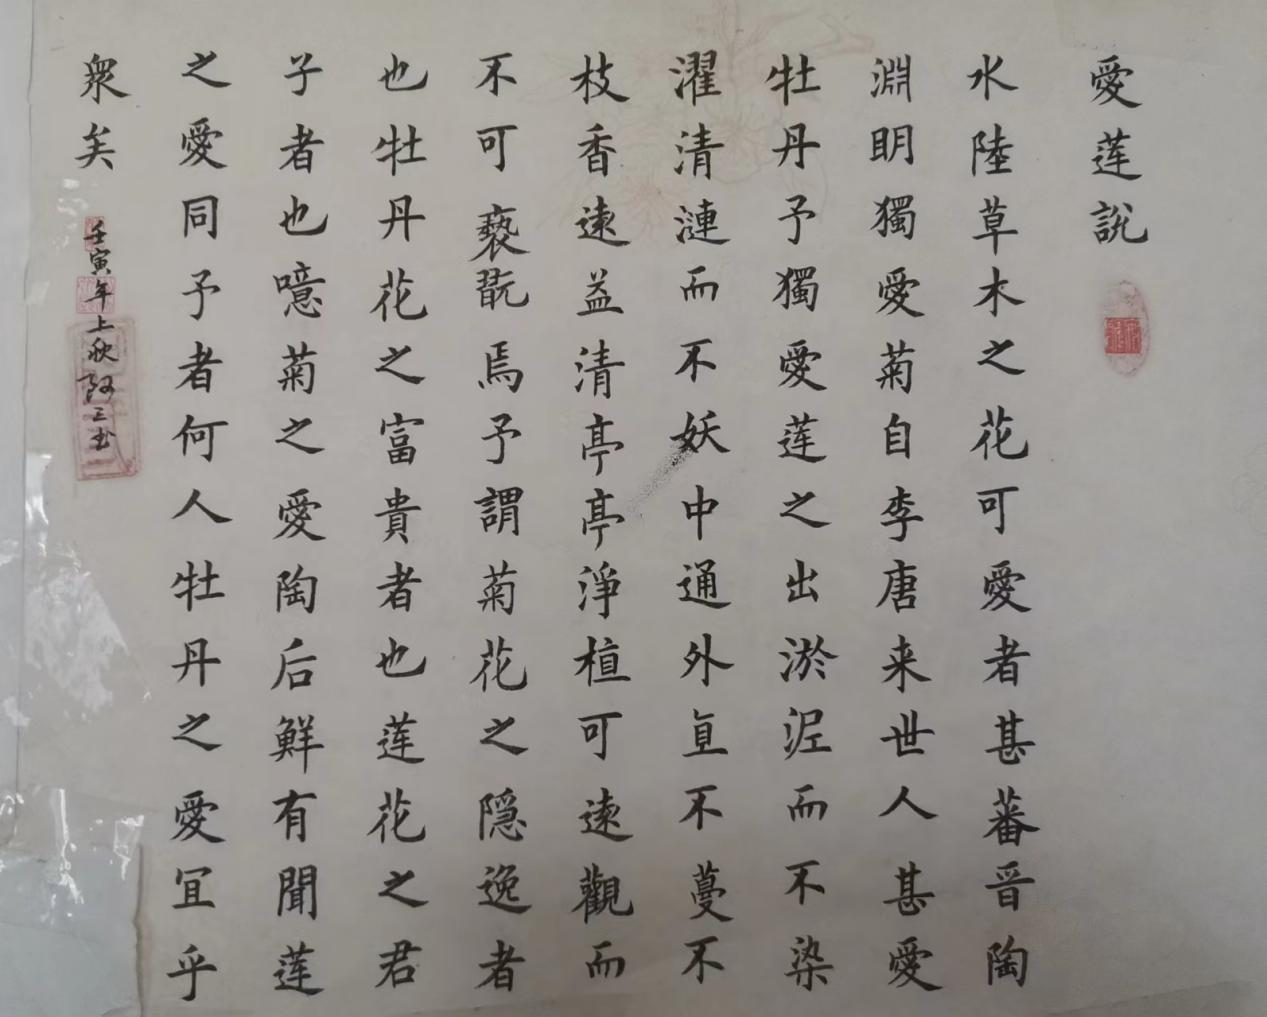 愛莲説
水陸草木之花可愛者甚蕃晉陶
淵明獨愛菊自李唐来世人甚愛
牡丹予獨愛莲之出淤泥而不染
濯清漣而不妖中通外直不蔓不
枝香遠益清亭亭淨植可遠觀而
不可褻翫焉予謂菊花之隠逸者
也牡丹花之富貴者也莲花之君
子者也噫菊之愛陶后鮮有聞莲
之愛同予者何人牡丹之愛宜乎
衆矣
壬寅年上秋阿三书